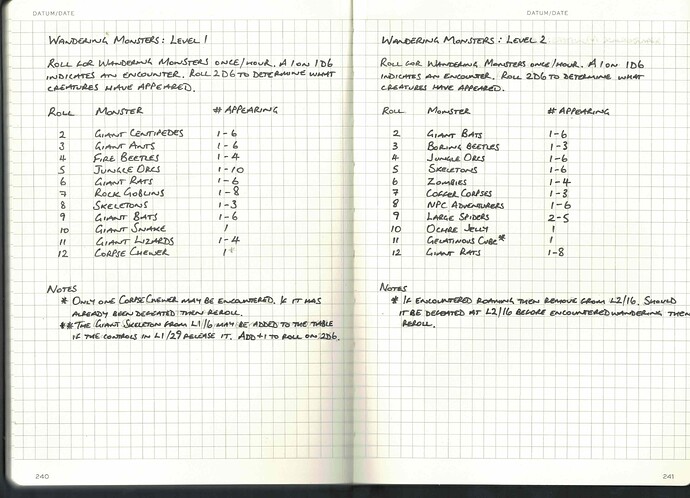 DATUM/DATE
WANDERING MONSTERS: LEVEL 1
ROLL FOR WANDERING MONSTERS ONCE/HOUR. A 1 ON 1D6
INDICATES AN ENCOUNTER. ROLL 2D6 TO DETERMINE WHAT
CREATURES HAVE APPEARED.
ROLL MONSTER # APPEARING
2 GIANT CENTIPEDES 1-6
3 GIANT ANTS 1-6
4 FIRE BEETLES 1-4
5 JUNGLE ORCS 1-10
6 GIANT RATS 1-6
7 ROCK GOBLINS 1-8
8 SKELETONS 1-3
9 GIANT BATS 1-6
10 GIANT SNAKE 1
11 GIANT LIZARDS 1-4
12 CORPSE CHEWER 1*
NOTES
* ONLY ONE CORPSE CHEWER MAY BE ENCOUNTERED. IF IT HAS
ALREADY BEEN DEFEATED THEN REROLL.
** THE GIANT SKELETON FROM L1/16 MAY BE ADDED TO THE TABLE
IF THE CONTROLS IN L1/29 RELEASE IT. ADD +1 TO ROLL ON 2D6.
240
DATUM/DATE
WANDERING MONSTERS: LEVEL 2
ROLL FOR WANDERING MONSTERS ONCE/HOUR. A 1 ON 1D6
INDICATES AN ENCOUNTER. ROLL 2D6 TO DETERMINE WHAT
CREATURES HAVE APPEARED.
ROLL MONSTER # APPEARING
2 GIANT BATS 1-6
3 BORING BEETLES 1-3
4 JUNGLE ORCS 1-6
5 SKELETONS 1-6
6 ZOMBIES 1-4
7 COFFER CORPSES 1-3
8 NPC ADVENTURERS 1-6
9 LARGE SPIDERS 2-5
10 OCHRE JELLY 1
11 GELATINOUS CUBE* 1
12 GIANT RATS 1-8
NOTES
* IF ENCOUNTERED ROAMING THEN REMOVE FROM L2/16. SHOULD
IT BE DEFEATED AT L2/16 BEFORE ENCOUNTERED WANDERING THEN
REROLL.
241